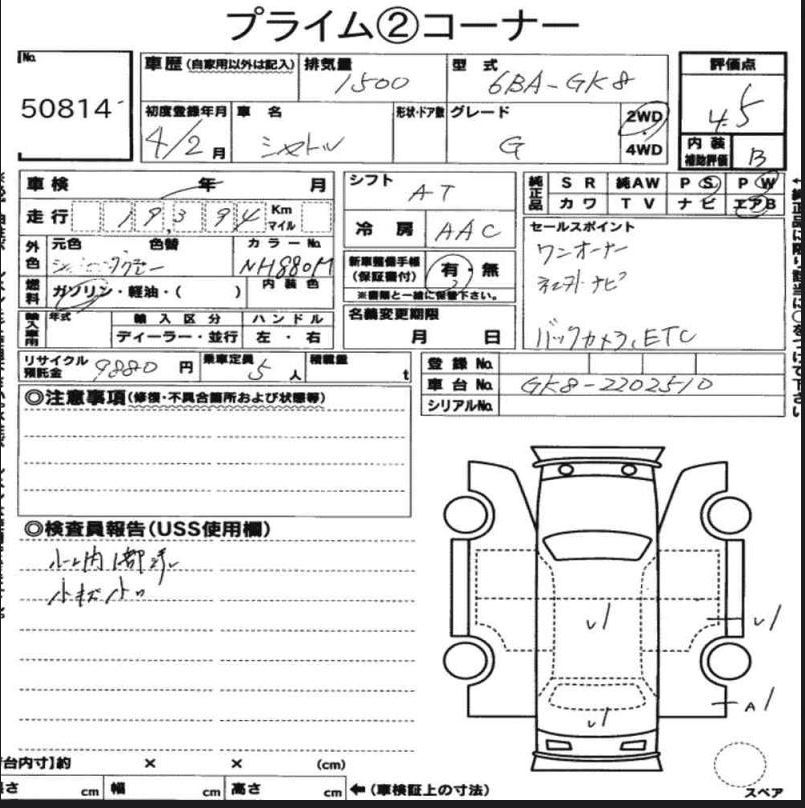 プライム②コーナー
No.
50814
車歴 (自家用以外は記入) 排気量 1500 型式 6BA-GK8 評価点 4.5
初度登録年月 4/2月 車名 シャトル 形状・ドア数 グレード G 2WD 4WD 内装補助評価 B
車検 年 月 シフト AT 純正品 SR 純AW PS PW
走行 19,394 Km マイル 冷房 AAC カワ TV ナビ エアB
外色 元色 色替 カラーNo. NH880M セールスポイント
ワンオーナー
新車整備手帳 (保証書付) 有・無
ナビ
燃料 ガソリン・軽油・( ) 内装色 ※書類と一緒に保管下さい。
輸入車用 年式 輸入区分 ハンドル 名義変更期限
ディーラー・並行 左・右 月 日
バックカメラ、ETC
リサイクル預託金 9880 円 乗車定員 5人 積載量 t 登録No.
車台No. GK8-2202510
シリアルNo.
◎注意事項(修復・不具合箇所および状態等)
◎検査員報告(USS使用欄)
小キズ小凹
√1
√1
A1
√1
台内寸】約 × × (cm)
さ cm 幅 cm 高さ cm ←(車検証上の寸法)
スペア